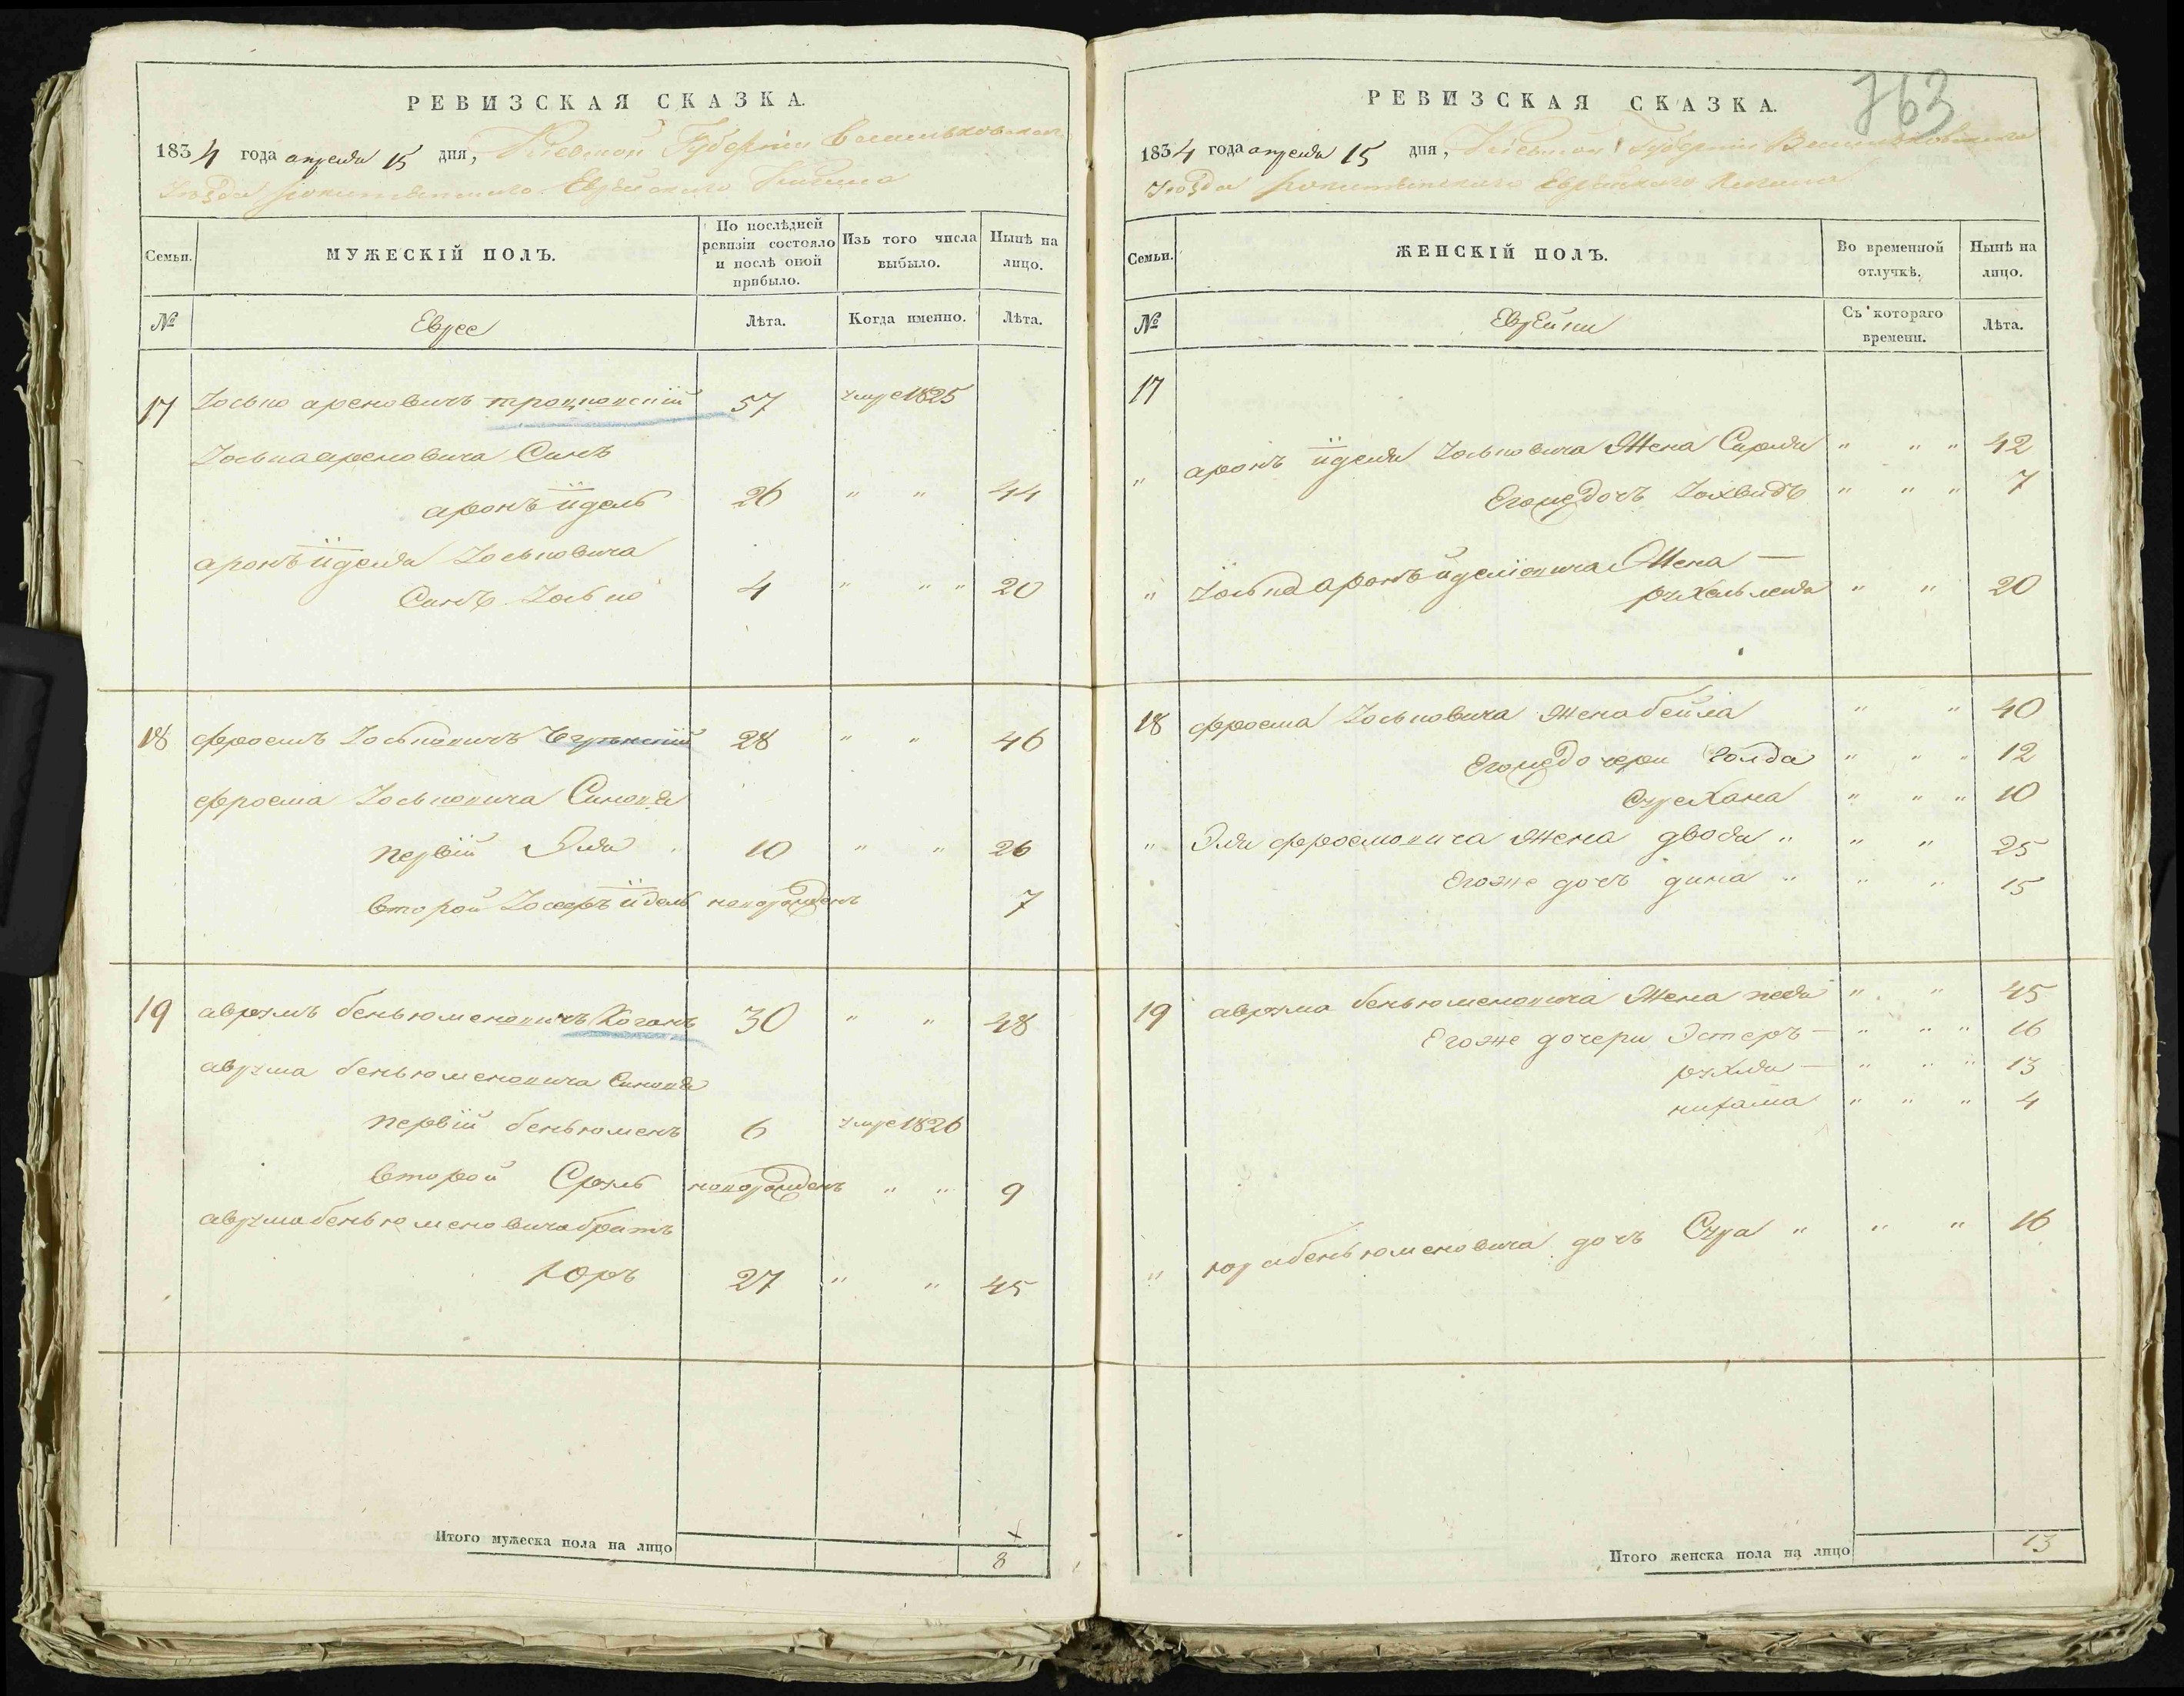 РЕВИЗСКАЯ СКАЗКА.
1834 года апреля 15 дня, Киевской Губернїи Васильковскаго
Уѣзда Рокитянскаго Еврейского Кагала
Семьи. МУЖЕСКІЙ ПОЛЪ. По послѣдней ревизіи состояло и послѣ оной прибыло. Изъ того числа выбыло. Нынѣ на лицо.
№ Еврее Лѣта. Когда именно. Лѣта.
17 Іосько ароновичъ троцковскїй 57 умре 1825
Іоська ароновича Синъ
аронъ идель 26 " " 44
аронъ иделя Іоськовича
Синъ Іосько 4 " " " 20
18 фроемъ Іоськовичъ 28 " " 46
фроема Іоськовича Синовя
первїй Эля 10 " " 26
второй Іосефъ идель новорожденъ 7
19 аврумъ беньюменовичъ Коганъ 30 " " 48
аврума беньюменовича Синовя
первїй беньюменъ 6 умре 1826
второй Сруль новорожденъ " " 9
аврума беньюменовича братъ
Юръ 27 " " 45
Итого мужеска пола на лицо 8
763
РЕВИЗСКАЯ СКАЗКА.
1834 года апреля 15 дня, Киевской Губернїи Васильковскаго
Уѣзда Рокитянскаго Еврейского Кагала
Семьи. ЖЕНСКІЙ ПОЛЪ. Во временной отлучкѣ. Нынѣ на лицо.
№ Еврейки Съ котораго времени. Лѣта.
17
" аронъ иделя Іоськовича Жена Сирля " " " 42
Егоже дочъ Іохвидъ " " " 7
" Іоська аронъ иделіовича Жена —
рухель лея " " 20
18 фроема Іоськовича жена бейла " " 40
Егоже дочери Голда " " " 12
Сурехана " " " 10
" Эли фроемовича жена двося " " " 25
Егоже дочъ дина " " " 15
19 аврума беньюменовича Жена " " 45
Егоже дочери Эстеръ — " " " 16
рухля — " " " 13
" " " 4
" юра беньюменовича дочъ Сура " " " 16
Итого женска пола на лицо 13